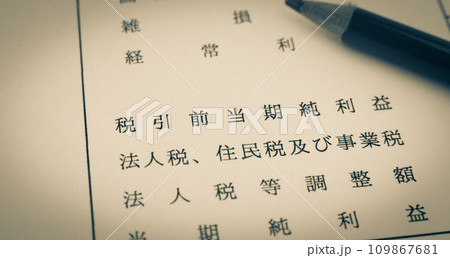 雑 損
経 常 利
税引前当期純利益
法人税、住民税及び事業税
法人税等調整額
当期純利益
PIXTA
pixta.jp - 109867681